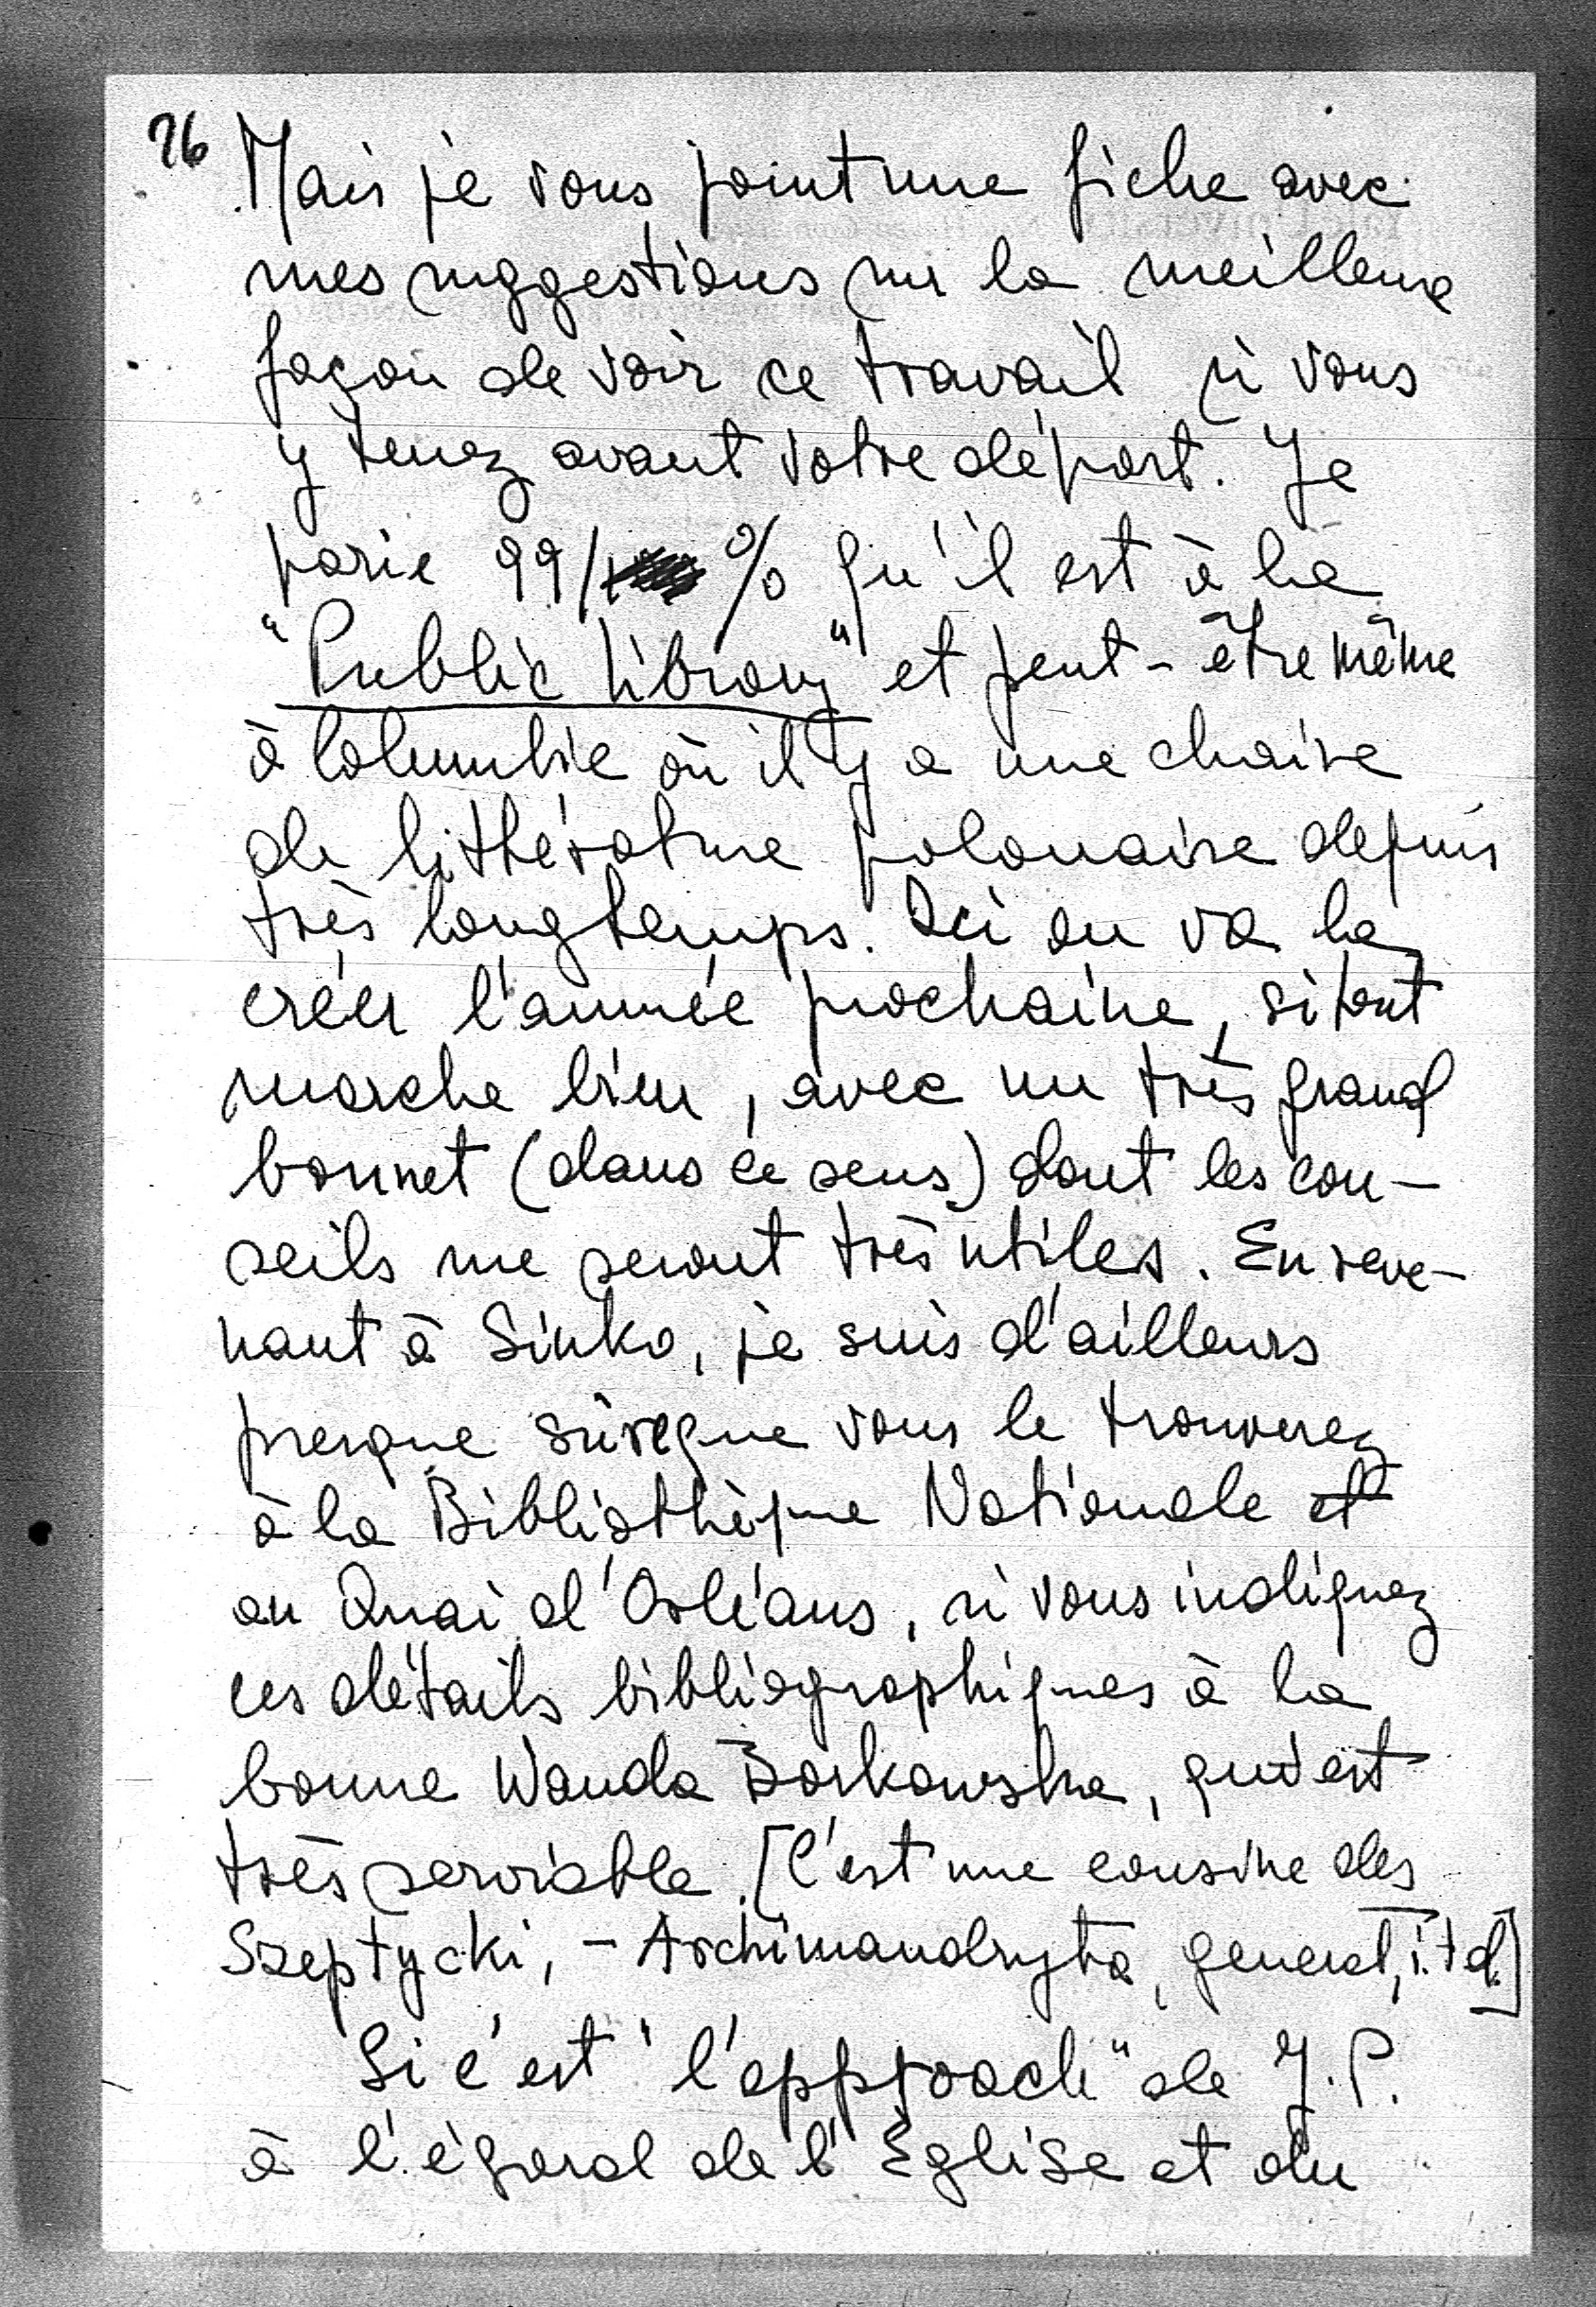 26
Mais je vous joint une fiche avec
mes suggestions sur la meilleure
façon de voir ce travail si vous
y tenez avant votre départ. Je
parie 99/ % qu'il est à la
"Public Library" et peut-être même
à Columbie où il y a une chaire
de litthérature polonaise depuis
très longtemps. Ici on va la
créer l'année prochaine, si tout
marche bien, avec un très grand
bonnet (dans ce sens) dont les con-
seils me seront très utiles. En reve-
nant à Sinko, je suis d'ailleurs
presque sûre que vous le trouverez
à la Bibliothèque Nationale et
au Quai d'Orléans, si vous indiquez
ces détails bibliographiques à la
bonne Wanda Borkowska, qui est
très serviable. [C'est une cousine des
Szeptycki, - Archimandryta, generał, i.t.d.]
Si c'est "l'approach" de J.P.
à l'égard de l'Eglise et du